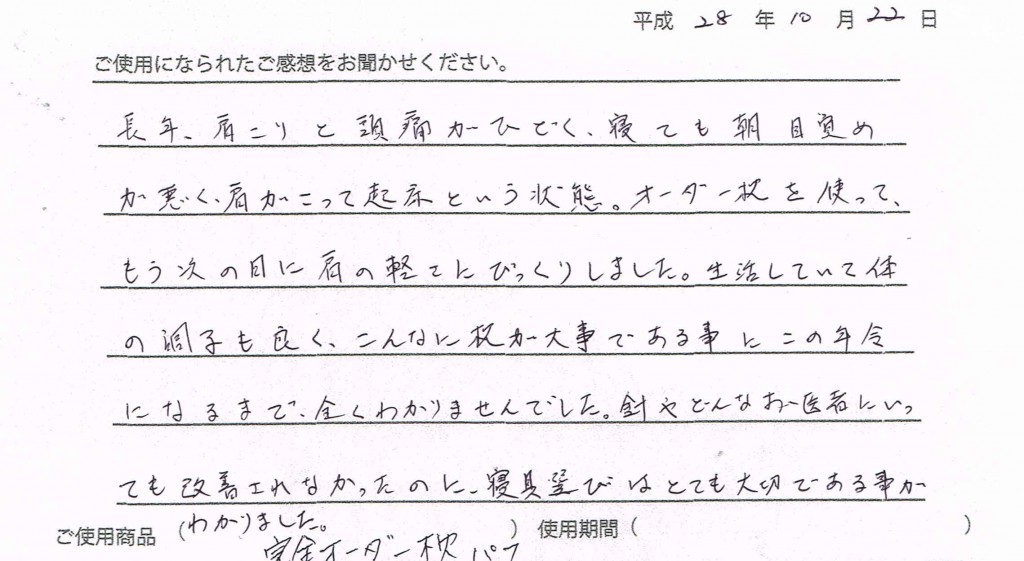 平成 28 年 10 月 22 日
ご使用になられたご感想をお聞かせください。
長年、肩こりと頭痛がひどく、寝ても朝目覚め
が悪く、肩がこって起床という状態。オーダー枕を使って、
もう次の日に肩の軽さにびっくりしました。生活していて体
の調子も良く、こんなに枕が大事である事にこの年令
になるまで、全くわかりませんでした。針やどんなお医者にいっ
ても改善されなかったのに、寝具選びはとても大切である事が
わかりました。
ご使用商品 ( ) 使用期間 ( )
完全オーダー枕